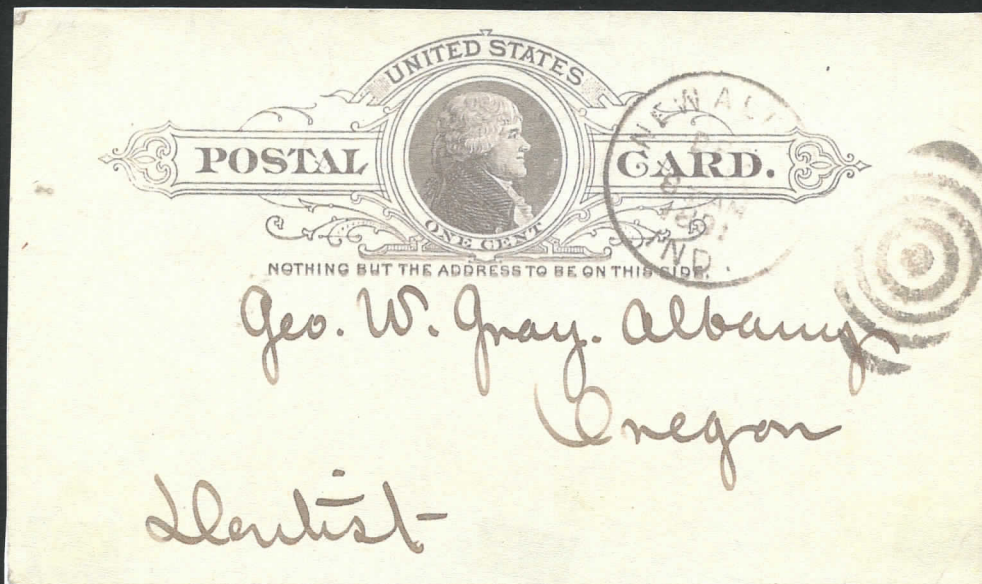 UNITED STATES
POSTAL CARD.
ONE CENT
NOTHING BUT THE ADDRESS TO BE ON THIS SIDE.
AM
IND.
Geo. W. Gray. Albany
Oregon
Dentist